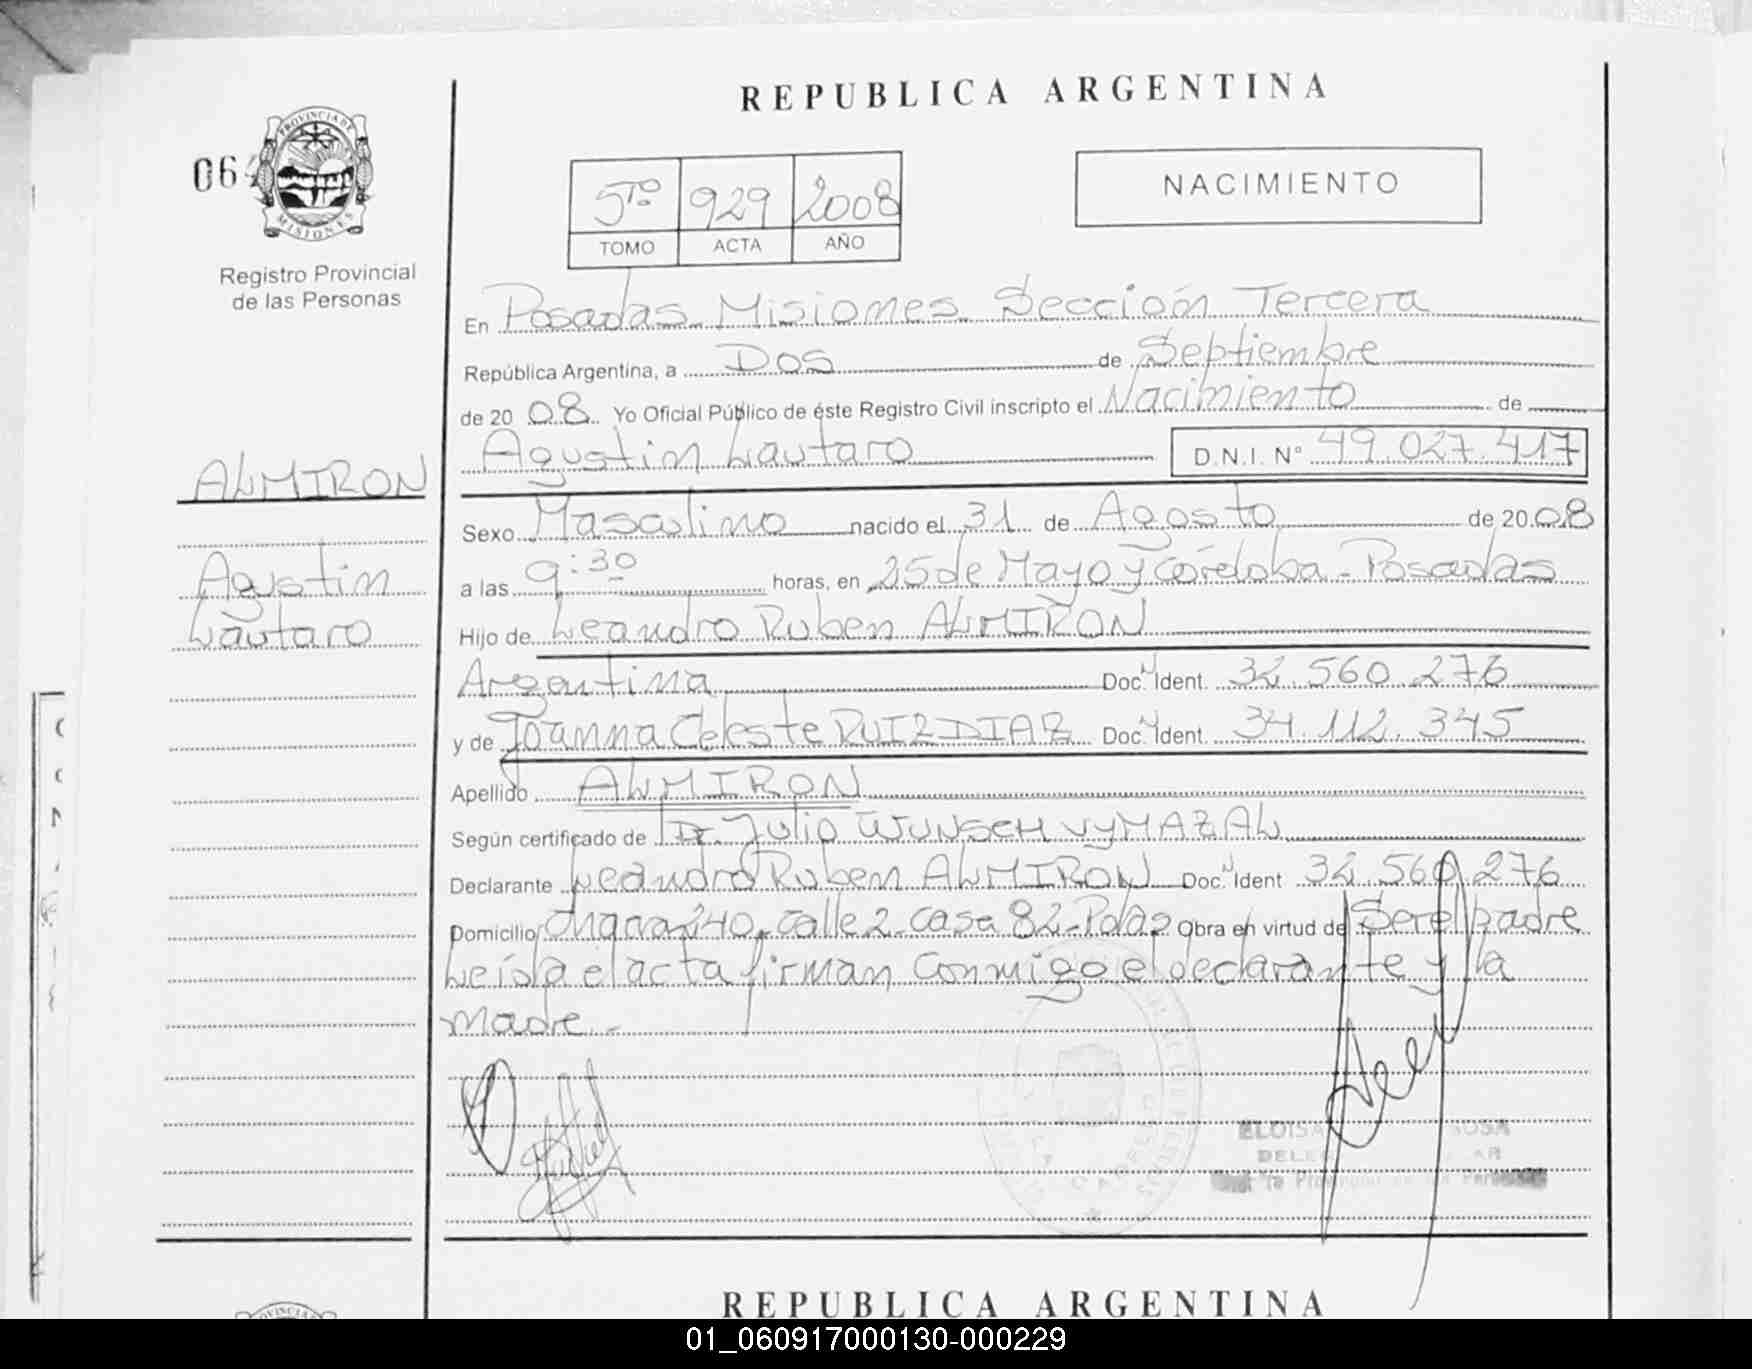 REPUBLICA ARGENTINA
PROVINCIA DE
MISIONES
06
Registro Provincial
de las Personas
5to 929 2008
TOMO ACTA AÑO
NACIMIENTO
En Posadas Misiones Sección Tercera
República Argentina, a Dos de Septiembre
de 20 08 Yo Oficial Público de éste Registro Civil inscripto el Nacimiento de
Agustin Lautaro D.N.I. Nº 49.027.417
ALMIRON
Agustin
Lautaro
Sexo Masculino nacido el 31 de Agosto de 20 08
a las 9:30 horas, en 25 de Mayo y Córdoba - Posadas
Hijo de Leandro Ruben ALMIRON
Argentina Doc. Ident. 32.560.276
y de Joanna Celeste RUIZ DIAZ Doc. Ident. 34.112.345
Apellido ALMIRON
Según certificado de Dr. Julio WUNSCH VYMAZAL
Declarante Leandro Ruben ALMIRON Doc. Ident 32.560.276
Domicilio Chacra 240 - calle 2 - casa 82 - Pdas Obra en virtud de Ser el padre
Leída el acta firman conmigo el declarante y la
madre.-
ELOISA SOSA
REPUBLICA ARGENTINA
01_060917000130-000229